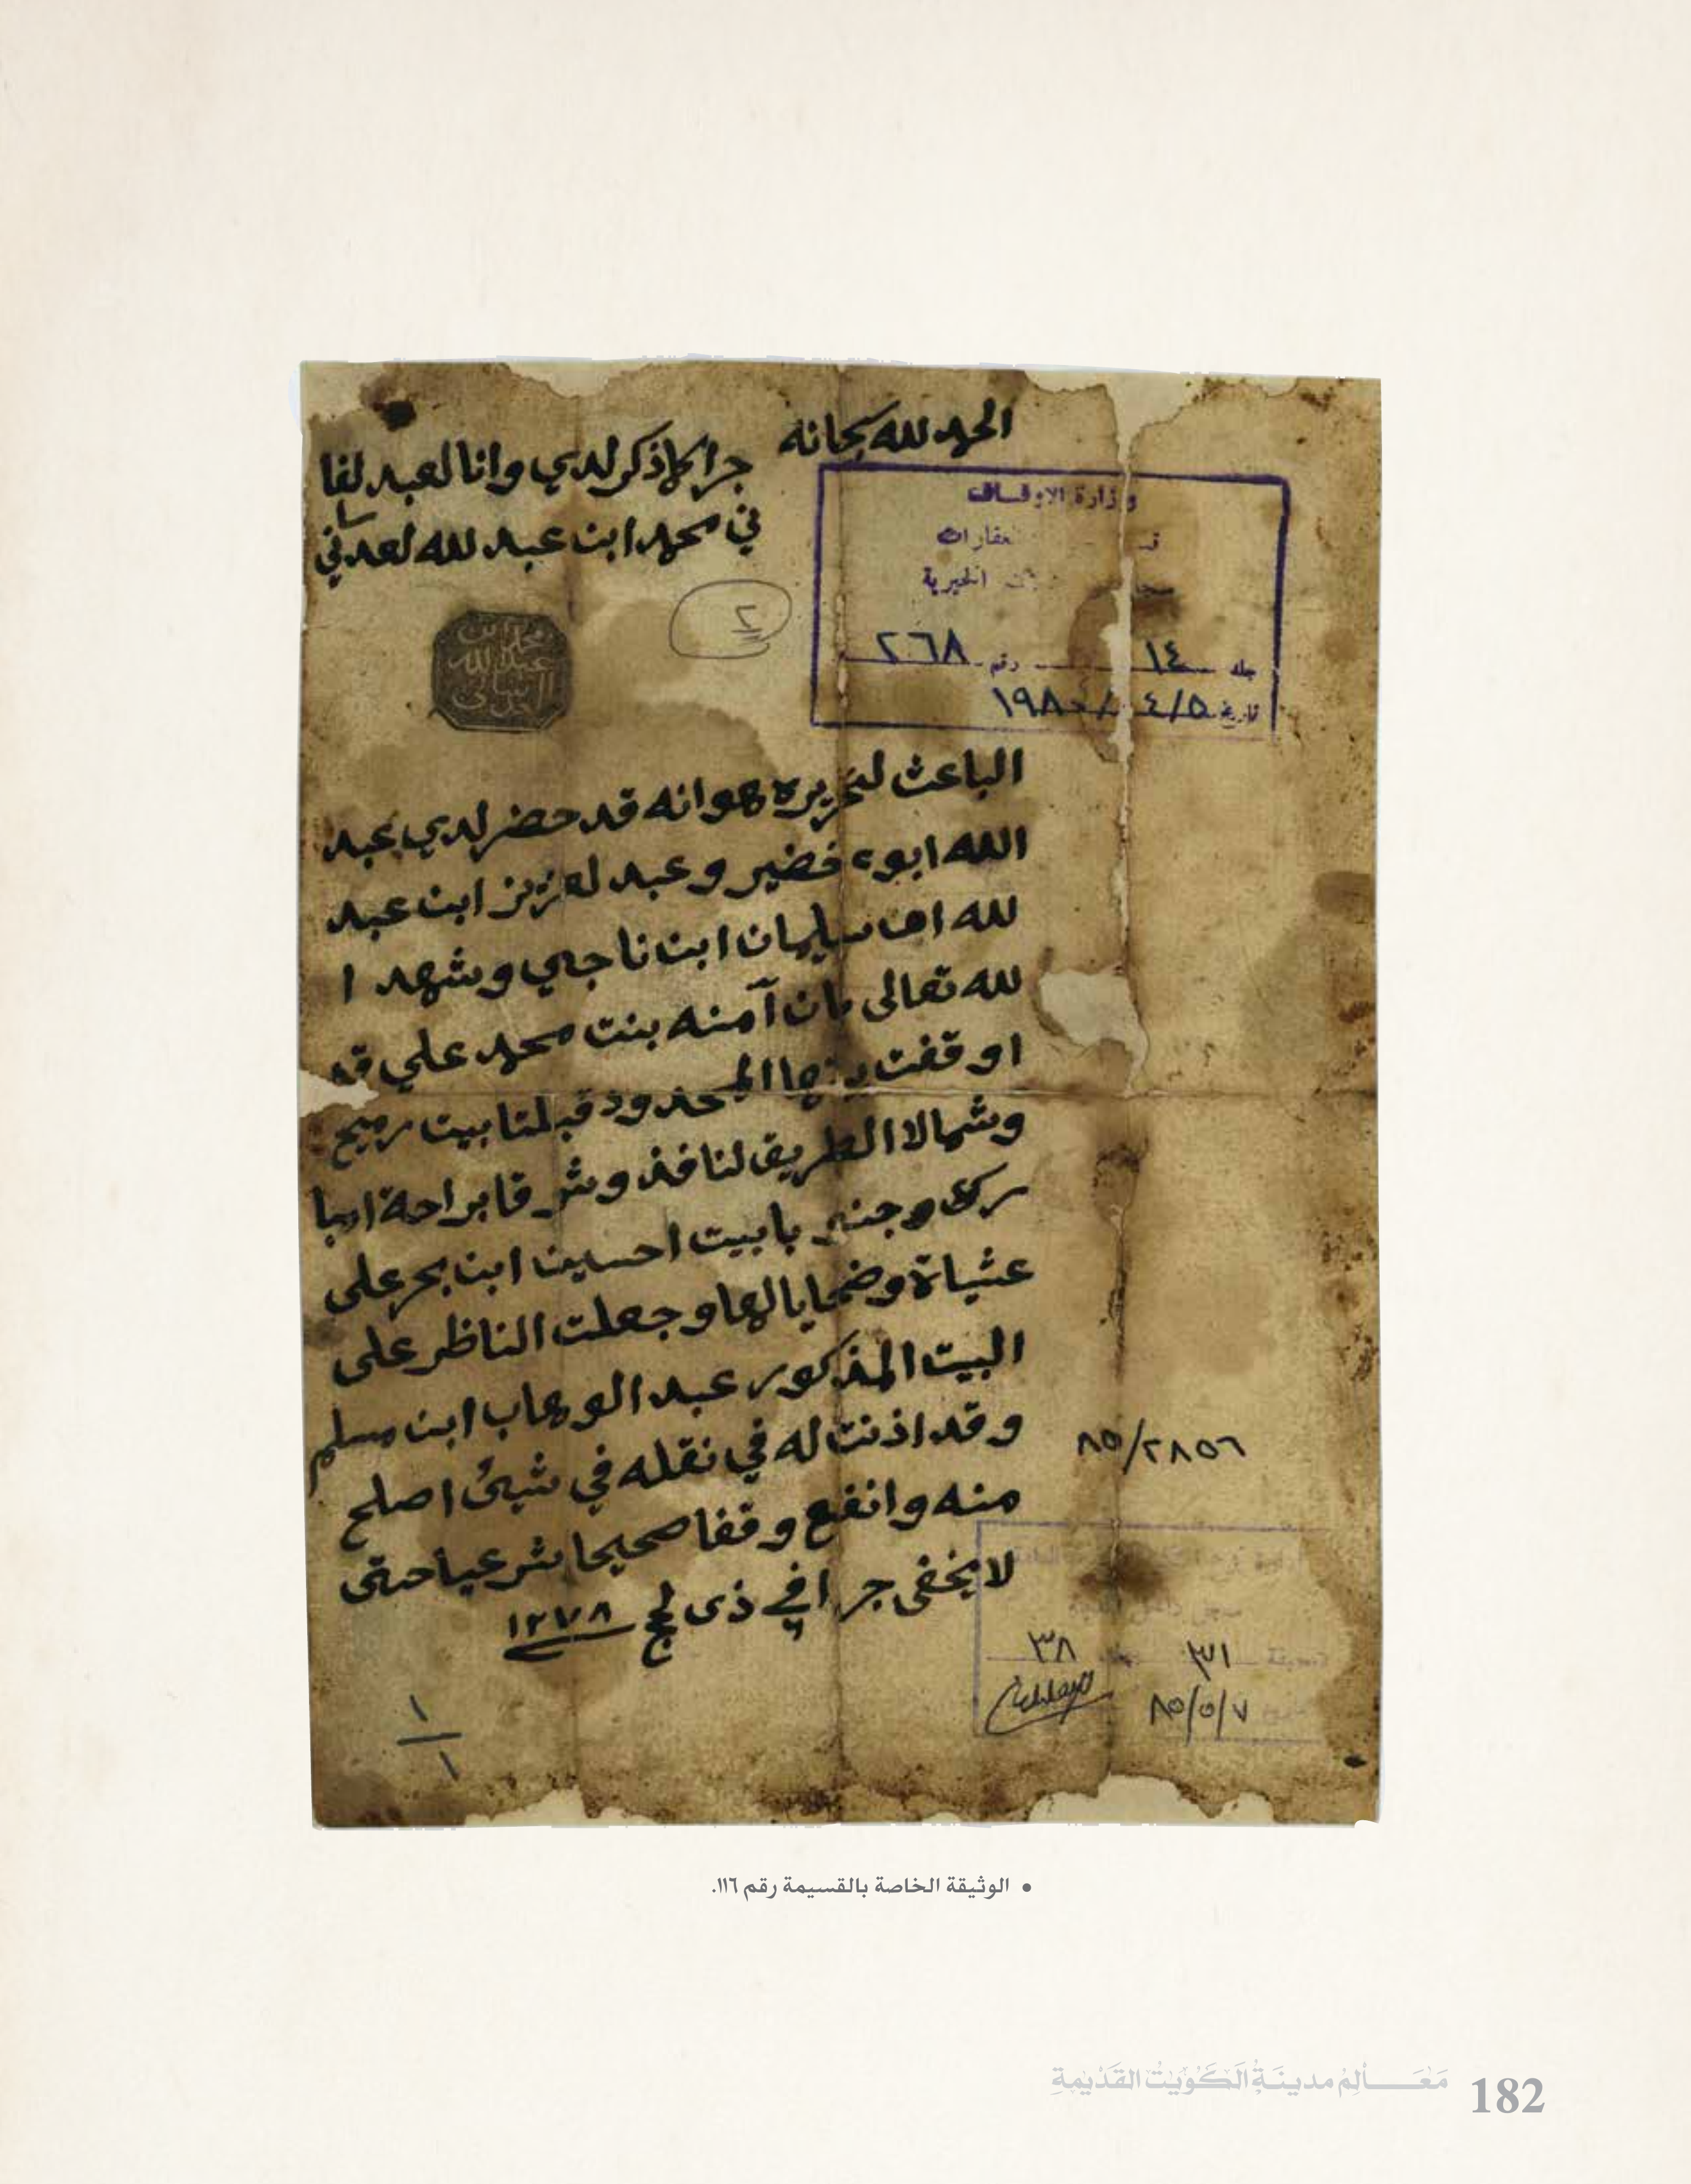 الحمد لله سبحانه
جرا كما ذكر لدي وانا لعبد لفا
ني محمد ابن عبد لله لعدساني
وزارة الاوقاف
العقارات
الخيرية
جلد ١٤ رقم ٢٦٨
تاريخ ٤/٥ / ١٩٨٠
٢
محمد ابن
عبد الله
العدساني
الباعث لتحريره هو انه قد حضر لدي عبد
الله ابوء خضير وعبد لعزيز ابن عبد
لله اف سليمان ابن ناجي وشهد ا
لله تعالى بان آمنه بنت محمد علي قد
اوقفت بيتها المحدود قبلتا بيت رميح
وشمالا الطريق لنافذ وشرقا براحة امبا
رك وجنوبا بيت احسين ابن بحر على
عشياة وضحايا لها وجعلت الناظر على
البيت المذكور عبد الوهاب ابن مسلم
وقد اذنت له في نقله في شيئ اصلح
منه وانفع وقفا صحيحا شرعيا حتى
لا يخفى جرا في ذى لحج ١٢٧٨
٨٥/٢٨٥٦
٣١ ٣٨
٨٥/٥/٧
١/١
• الوثيقة الخاصة بالقسيمة رقم ١١٦.
مَعَالِمُ مدينَةُ الكُوَيتُ القَدْيمةِ 182